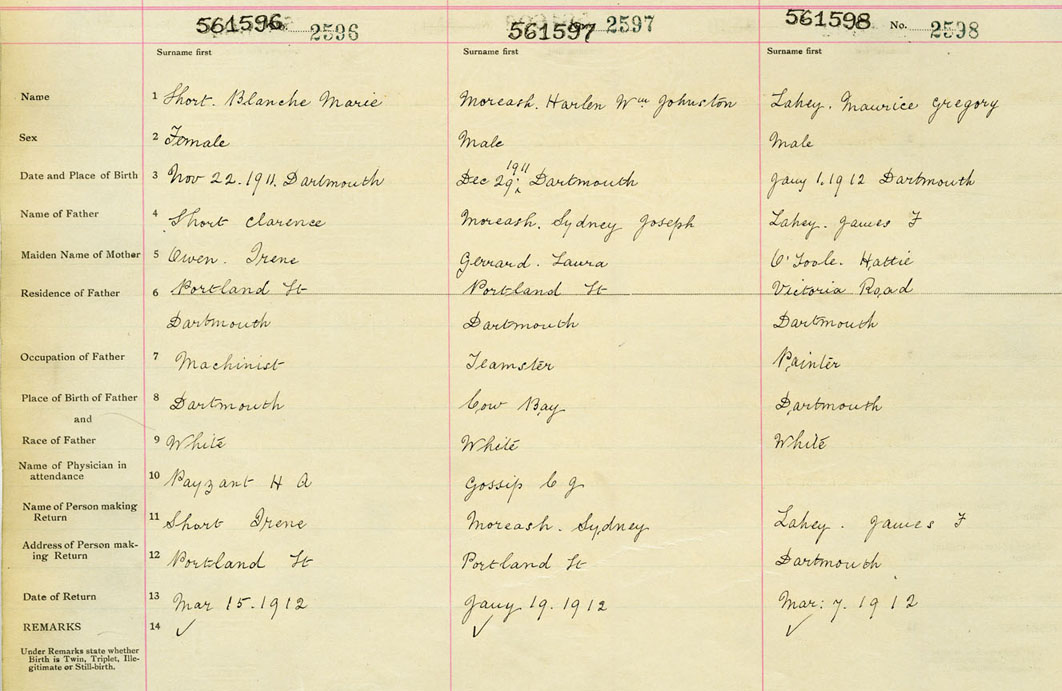 561596 2596 561597 2597 561598 No. 2598
Surname first Surname first Surname first
Name 1 Short. Blanche Marie Moreash. Harlen Wm Johnston Lahey. Maurice Gregory
Sex 2 Female Male Male
1911
Date and Place of Birth 3 Nov 22.1911. Dartmouth Dec 29, Dartmouth Jany 1, 1912 Dartmouth
Name of Father 4 Short Clarence Moreash. Sydney Joseph Lahey. James F
Maiden Name of Mother 5 Owen. Irene Gerrard. Laura O'Toole. Hattie
Residence of Father 6 Portland St Portland St Victoria Road
Dartmouth Dartmouth Dartmouth
Occupation of Father 7 Machinist Teamster Painter
Place of Birth of Father 8 Dartmouth Cow Bay Dartmouth
and
Race of Father 9 White White White
Name of Physician in
attendance 10 Payzant H A Gossip C G
Name of Person making
Return 11 Short Irene Moreash. Sydney Lahey. James F
Address of Person mak-
ing Return 12 Portland St Portland St Dartmouth
Date of Return 13 Mar 15.1912 Jany 19.1912 Mar: 7.1912
REMARKS 14 ✓ ✓ ✓
Under Remarks state whether
Birth is Twin, Triplet, Ille-
gitimate or Still-birth.